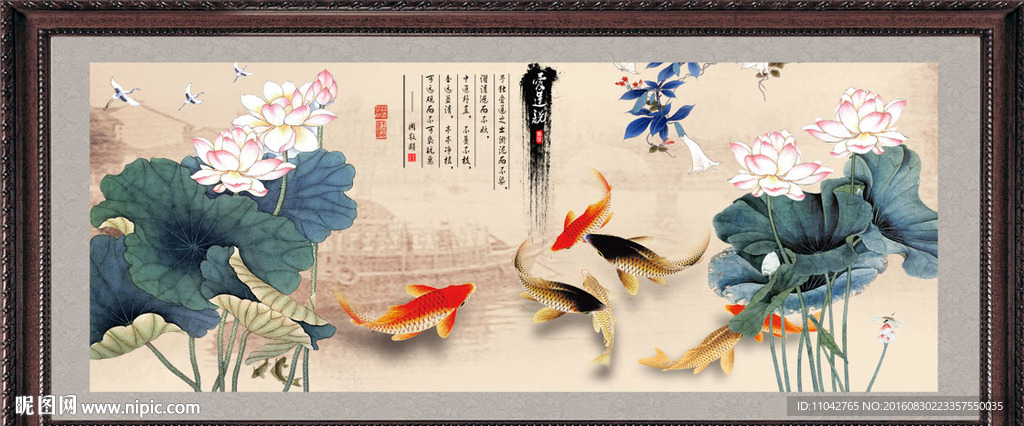 爱莲说
予独爱莲之出淤泥而不染，
濯清涟而不妖，
中通外直，不蔓不枝，
香远益清，亭亭净植，
可远观而不可亵玩焉
——周敦颐
昵图网 www.nipic.com
ID:11042765 NO:20160830223357550035